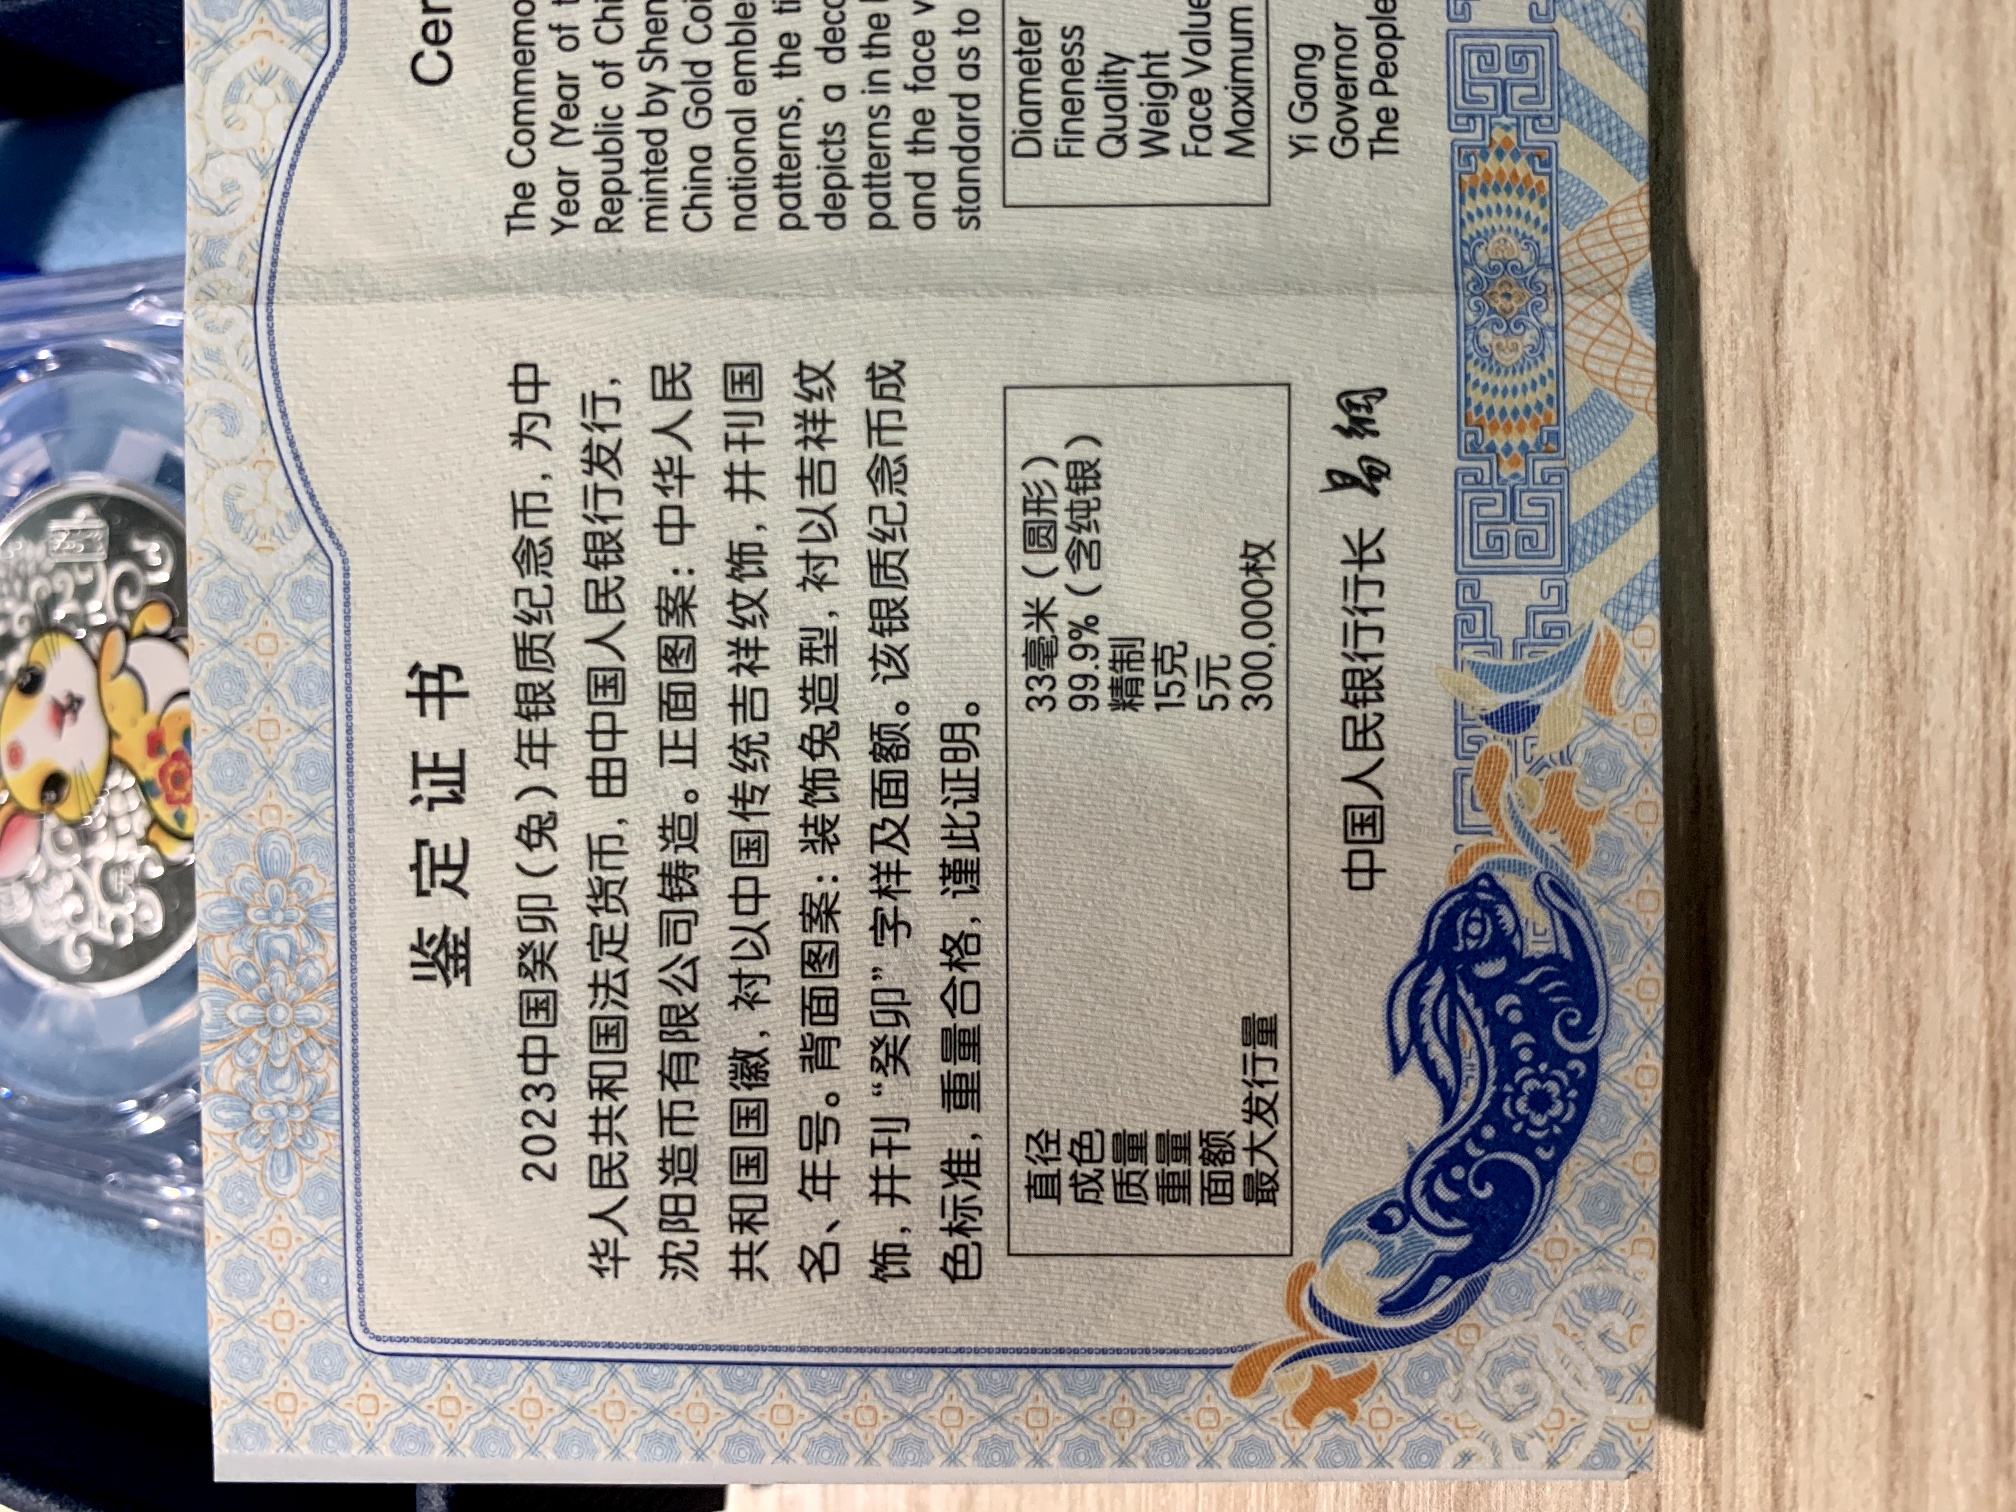 鉴定证书
2023中国癸卯（兔）年银质纪念币，为中
华人民共和国法定货币，由中国人民银行发行，
沈阳造币有限公司铸造。正面图案：中华人民
共和国国徽，衬以中国传统吉祥纹饰，并刊国
名、年号。背面图案：装饰兔造型，衬以吉祥纹
饰，并刊“癸卯”字样及面额。该银质纪念币成
色标准，重量合格，谨此证明。
直径 33毫米（圆形）
成色 99.9%（含纯银）
质量 精制
重量 15克
面额 5元
最大发行量 300,000枚
中国人民银行行长 易纲
Cer
The Commemo
Year (Year of t
Republic of Chi
minted by Shen
China Gold Coi
national emble
patterns, the ti
depicts a deco
patterns in the
and the face v
standard as to
Diameter
Fineness
Quality
Weight
Face Value
Maximum
Yi Gang
Governor
The People